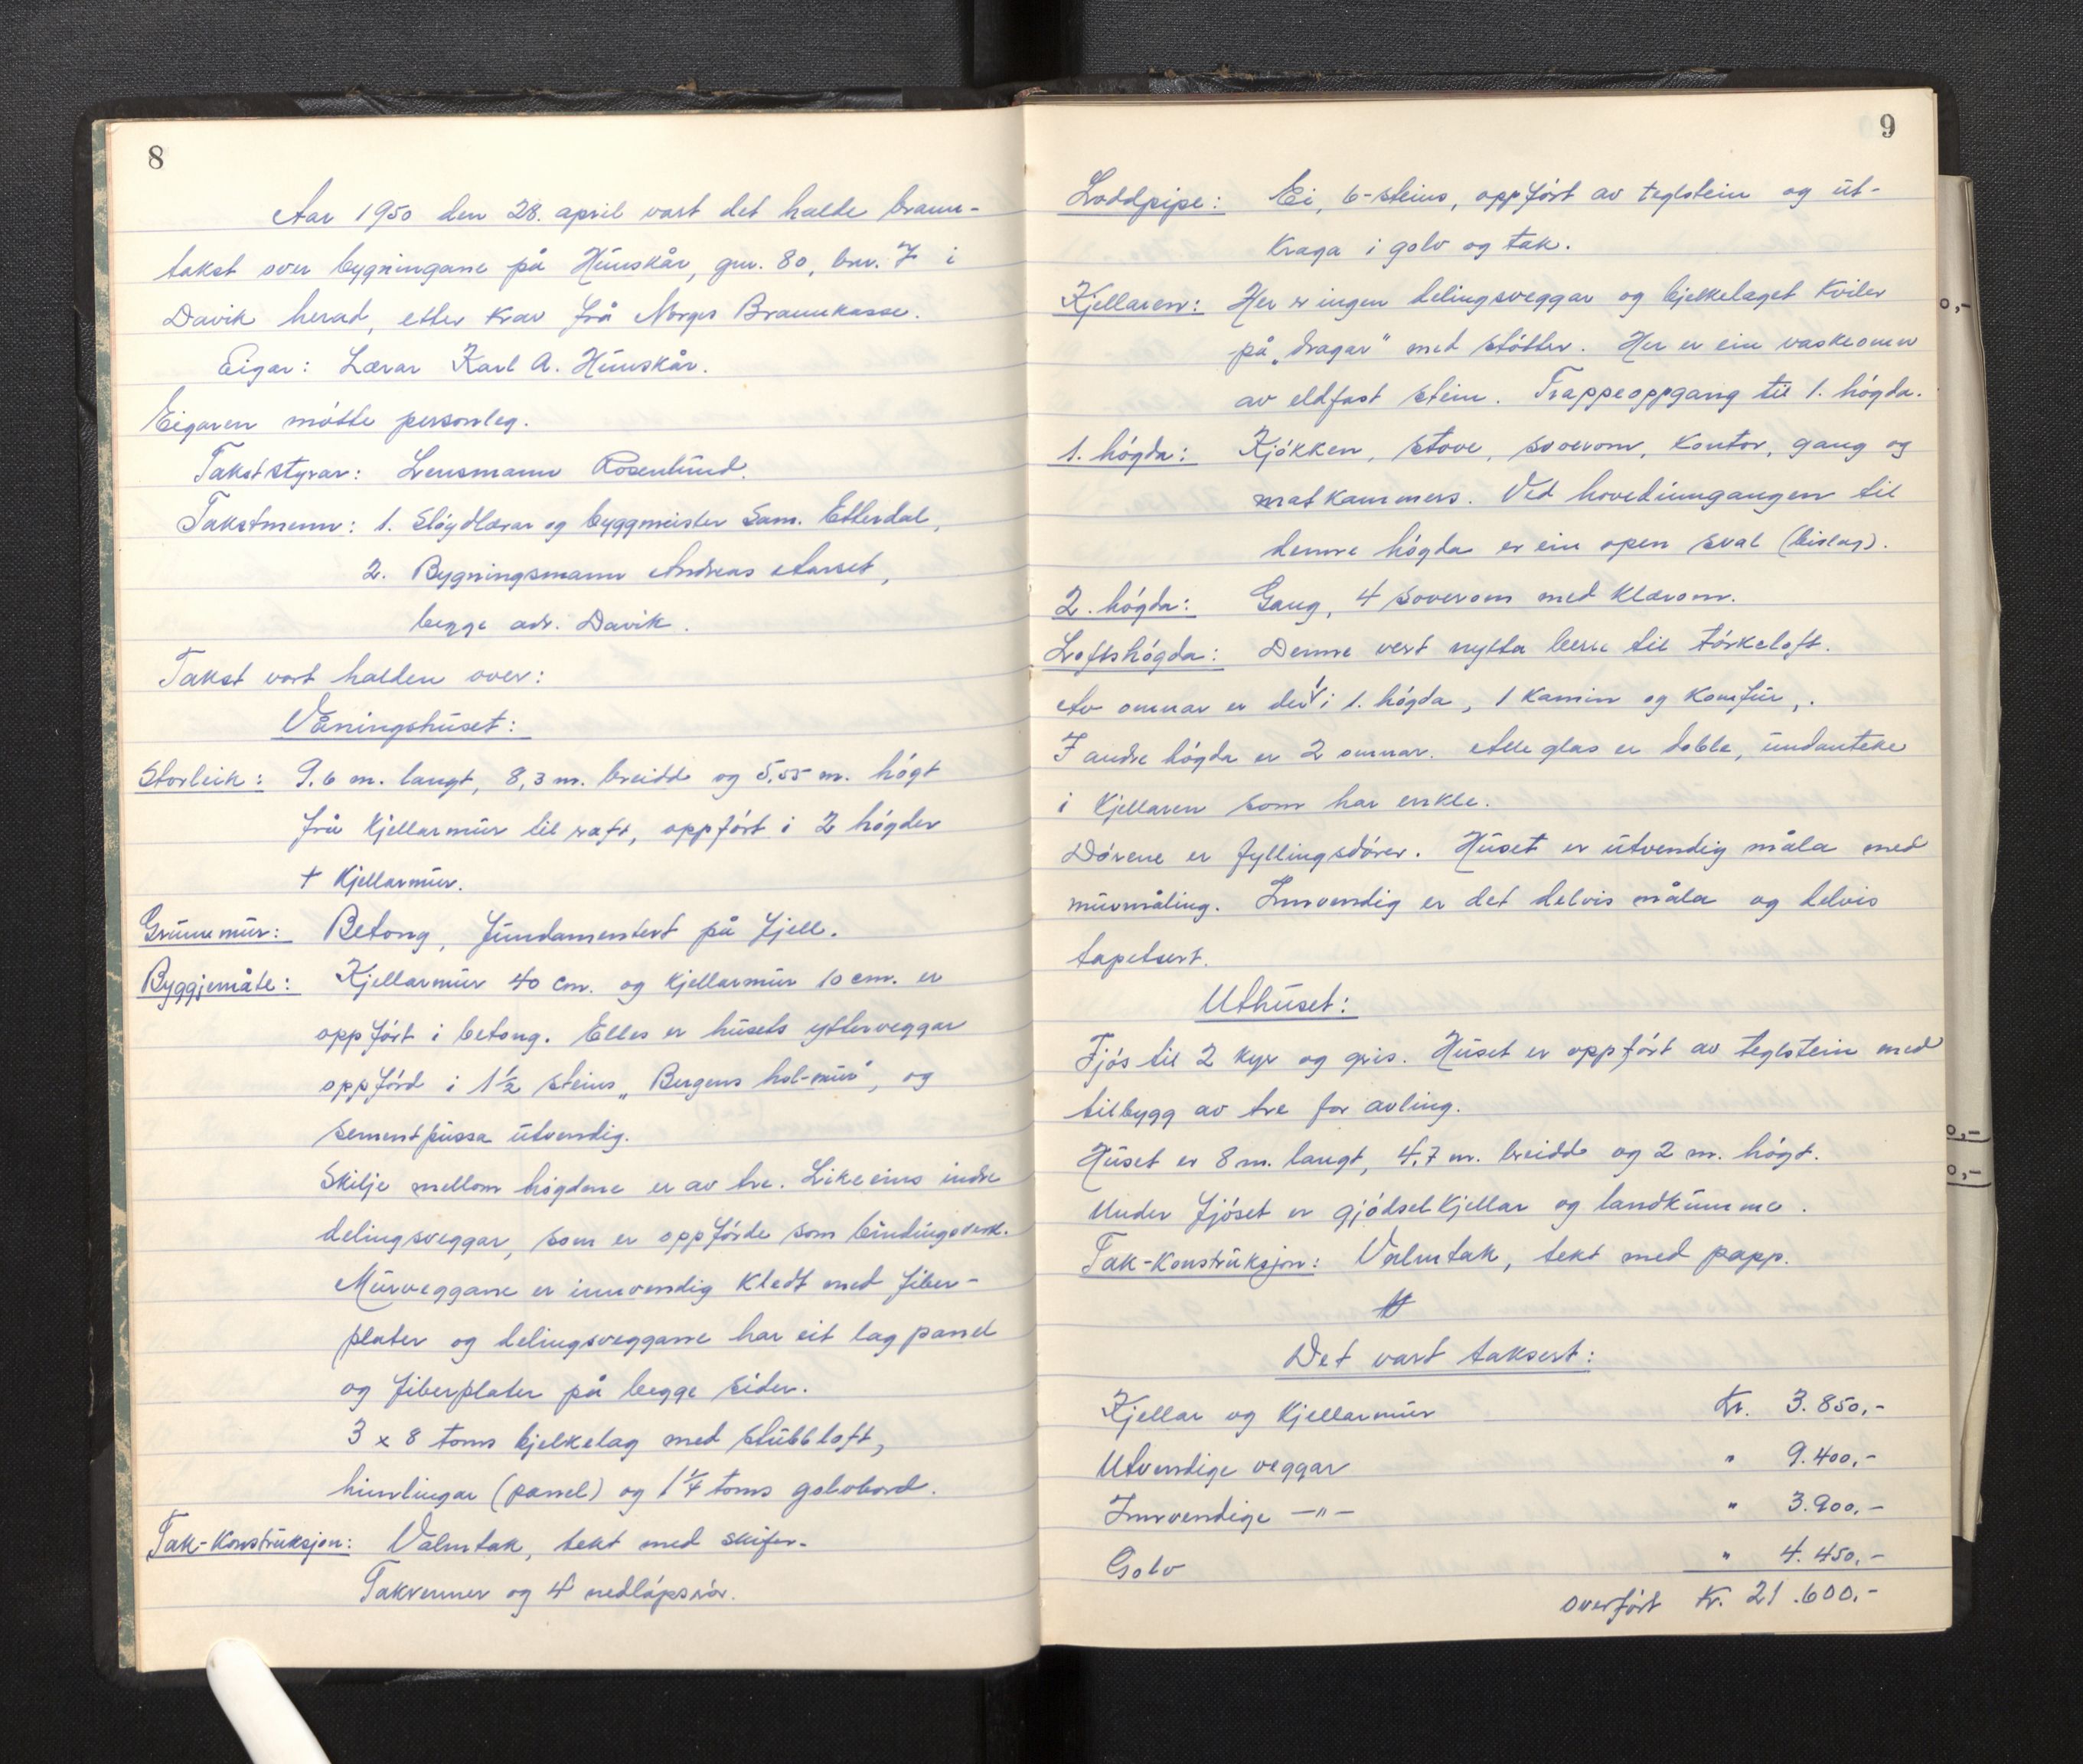 8
Aar 1950 den 28. april vart det halde brann-
takst over bygningane på Hunskår, gnr. 80, bnr. 7 i
Davik herad, etter krav frå Norges Brannkasse.
Eigar: Lærar Karl A. Hunskår.
Eigaren møtte personleg.
Takststyrar: Lensmann Rosenlund.
Takstmenn: 1. Sløydlærar og byggmeister Sam. Etterdal,
2. Bygningsmann Andreas Aarset,
begge adr. Davik.
Takst vart halden over:
Våningshuset:
Storleik: 9.6 m. langt, 8,3 m. breidd og 5,55 m. høgt
frå kjellarmur til raft, oppført i 2 høgder
+ kjellarmur.
Grunnmur: Betong, fundamentert på fjell.
Byggjemåte: Kjellarmur 40 cm. og kjellarmur 10 cm. er
oppført i betong. Elles er husets ytterveggar
oppførd i 1½ steins „Bergens hol-mur", og
sementpussa utvendig.
Skilje mellom høgdene er av tre. Likeeins indre
delingsveggar, som er oppførde som bindingsverk.
Murveggane er innvendig kledt med fiber-
plater og delingsveggane har eit lag panel
og fiberplater på begge sider.
3 x 8 toms bjelkelag med stubbloft,
himlingar (panel) og 1¼ toms golvbord.
Tak-konstruksjon: Valmtak, tekt med skifer.
Takrenner og 4 nedløpsrør.
9
Loddpipe: Ei, 6-steins, oppført av teglstein og ut-
kraga i golv og tak.
Kjellaren: Her er ingen delingsveggar og bjelkelaget kviler
på „dragar" med støtter. Her er ein vaskeomn
av eldfast stein. Trappeoppgang til 1. høgda.
1. høgda: Kjøkken, stove, soverom, kontor, gang og
matkammers. Ved hovedinngangen til
denne høgda er ein open sval (bislag).
2. høgda: Gang, 4 soverom med klærom.
Loftshøgda: Denne vert nytta berre til tørkeloft.
Av omnar er der i 1. høgda, 1 kamin og komfur,.
I andre høgda er 2 omnar. Alle glas er doble, undanteke
i kjellaren som har enkle.
Dørene er fyllingsdører. Huset er utvendig måla med
murmåling. Innvendig er det delvis måla og delvis
tapetsert.
Uthuset:
Fjøs til 2 kyr og gris. Huset er oppført av teglstein med
tilbygg av tre for avling.
Huset er 8 m. langt, 4,7 m. breidd og 2 m. høgt.
Under fjøset er gjødselkjellar og landkumme.
Tak-konstruksjon: Valmtak, tekt med papp.
Det vart taksert:
Kjellar og kjellarmur Kr. 3.850,-
Utvendige veggar " 9.400,-
Innvendige —"— " 3.900,-
Golv " 4.450,-
overført Kr. 21.600.-
0,-
0,-
0,-